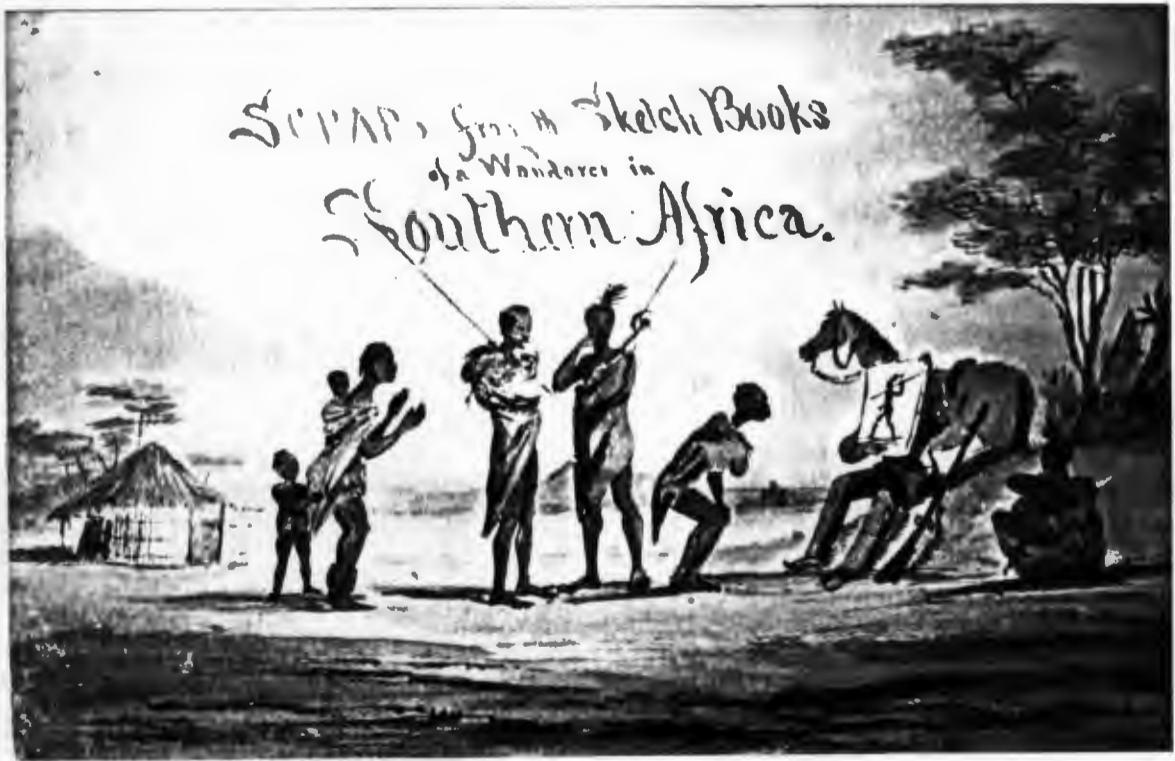 Scraps from Sketch Books
of a Wanderer in
Southern Africa.